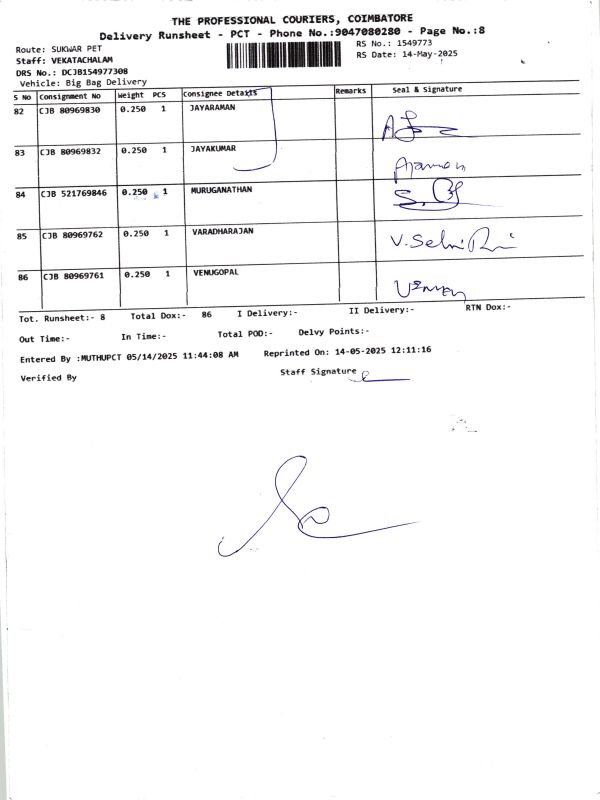 THE PROFESSIONAL COURIERS, COIMBATORE
Delivery Runsheet - PCT - Phone No.:9047080280 - Page No.:8
Route: SUKWAR PET
RS No.: 1549773
Staff: VEKATACHALAM
RS Date: 14-May-2025
DRS No.: DCJB154977308
Vehicle: Big Bag Delivery
S No Consignment No Weight PCS Consignee Details Remarks Seal & Signature
82 CJB 80969830 0.250 1 JAYARAMAN
83 CJB 80969832 0.250 1 JAYAKUMAR
84 CJB 521769846 0.250 1 MURUGANATHAN
85 CJB 80969762 0.250 1 VARADHARAJAN
86 CJB 80969761 0.250 1 VENUGOPAL
Tot. Runsheet:- 8 Total Dox:- 86 I Delivery:- II Delivery:- RTN Dox:-
Out Time:- In Time:- Total POD:- Delvy Points:-
Entered By :MUTHUPCT 05/14/2025 11:44:08 AM Reprinted On: 14-05-2025 12:11:16
Verified By Staff Signature